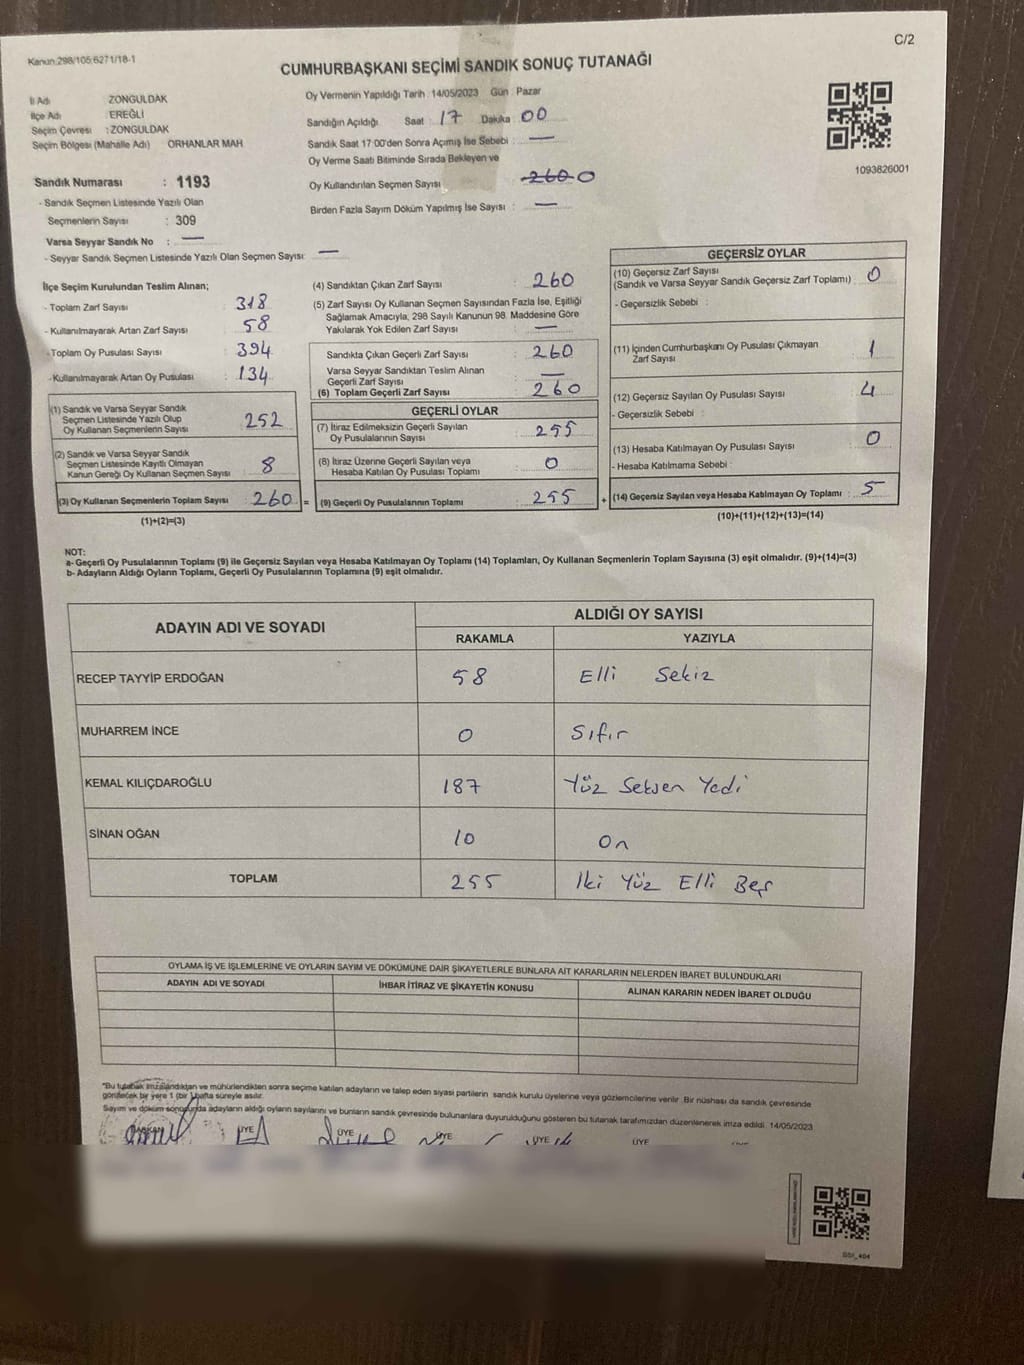 C/2
Kanun:298/105;6271/18-1
CUMHURBAŞKANI SEÇİMİ SANDIK SONUÇ TUTANAĞI
İl Adı ZONGULDAK
İlçe Adı : EREĞLİ
Seçim Çevresi : ZONGULDAK
Seçim Bölgesi (Mahalle Adı) ORHANLAR MAH
Oy Vermenin Yapıldığı Tarih : 14/05/2023 Gün : Pazar
Sandığın Açıldığı Saat : 17 Dakika : 00
Sandık Saat 17:00'den Sonra Açımış İse Sebebi : —
Oy Verme Saati Bitiminde Sırada Bekleyen ve
Oy Kullandırılan Seçmen Sayısı : 260 0
Birden Fazla Sayım Döküm Yapılmış İse Sayısı : —
1093626001
Sandık Numarası : 1193
- Sandık Seçmen Listesinde Yazılı Olan
Seçmenlerin Sayısı : 309
Varsa Seyyar Sandık No : —
- Seyyar Sandık Seçmen Listesinde Yazılı Olan Seçmen Sayısı: —
İlçe Seçim Kurulundan Teslim Alınan;
- Toplam Zarf Sayısı : 318
- Kullanılmayarak Artan Zarf Sayısı : 58
- Toplam Oy Pusulası Sayısı : 394
- Kullanılmayarak Artan Oy Pusulası : 134
(1) Sandık ve Varsa Seyyar Sandık
Seçmen Listesinde Yazılı Olup
Oy Kullanan Seçmenlerin Sayısı : 252
(2) Sandık ve Varsa Seyyar Sandık
Seçmen Listesinde Kayıtlı Olmayan
Kanun Gereği Oy Kullanan Seçmen Sayısı : 8
(3) Oy Kullanan Seçmenlerin Toplam Sayısı : 260 =
(1)+(2)=(3)
(4) Sandıktan Çıkan Zarf Sayısı : 260
(5) Zarf Sayısı Oy Kullanan Seçmen Sayısından Fazla İse, Eşitliği
Sağlamak Amacıyla, 298 Sayılı Kanunun 98. Maddesine Göre
Yakılarak Yok Edilen Zarf Sayısı : —
Sandıkta Çıkan Geçerli Zarf Sayısı : 260
Varsa Seyyar Sandıktan Teslim Alınan
Geçerli Zarf Sayısı : —
(6) Toplam Geçerli Zarf Sayısı : 260
GEÇERLİ OYLAR
(7) İtiraz Edilmeksizin Geçerli Sayılan
Oy Pusulalarının Sayısı : 255
(8) İtiraz Üzerine Geçerli Sayılan veya
Hesaba Katılan Oy Pusulası Toplamı : 0
(9) Geçerli Oy Pusulalarının Toplamı : 255 +
GEÇERSİZ OYLAR
(10) Geçersiz Zarf Sayısı
(Sandık ve Varsa Seyyar Sandık Geçersiz Zarf Toplamı) : 0
- Geçersizlik Sebebi :
(11) İçinden Cumhurbaşkanı Oy Pusulası Çıkmayan
Zarf Sayısı : 1
(12) Geçersiz Sayılan Oy Pusulası Sayısı : 4
- Geçersizlik Sebebi :
(13) Hesaba Katılmayan Oy Pusulası Sayısı : 0
- Hesaba Katılmama Sebebi :
(14) Geçersiz Sayılan veya Hesaba Katılmayan Oy Toplamı : 5
(10)+(11)+(12)+(13)=(14)
NOT:
a- Geçerli Oy Pusulalarının Toplamı (9) ile Geçersiz Sayılan veya Hesaba Katılmayan Oy Toplamı (14) Toplamları, Oy Kullanan Seçmenlerin Toplam Sayısına (3) eşit olmalıdır. (9)+(14)=(3)
b- Adayların Aldığı Oyların Toplamı, Geçerli Oy Pusulalarının Toplamına (9) eşit olmalıdır.
ADAYIN ADI VE SOYADI ALDIĞI OY SAYISI
RAKAMLA YAZIYLA
RECEP TAYYİP ERDOĞAN 58 Elli Sekiz
MUHARREM İNCE 0 Sıfır
KEMAL KILIÇDAROĞLU 187 Yüz Seksen Yedi
SİNAN OĞAN 10 On
TOPLAM 255 İki Yüz Elli Beş
OYLAMA İŞ VE İŞLEMLERİNE VE OYLARIN SAYIM VE DÖKÜMÜNE DAİR ŞİKAYETLERLE BUNLARA AİT KARARLARIN NELERDEN İBARET BULUNDUKLARI
ADAYIN ADI VE SOYADI İHBAR İTİRAZ VE ŞİKAYETİN KONUSU ALINAN KARARIN NEDEN İBARET OLDUĞU
"Bu tutanak imzalandıktan ve mühürlendikten sonra seçime katılan adayların ve talep eden siyasi partilerin sandık kurulu üyelerine veya gözlemcilerine verilir. Bir nüshası da sandık çevresinde
görülecek bir yere 1 (bir) hafta süreyle asılır.
Sayım ve döküm sonucunda adayların aldığı oyların sayılarını ve bunların sandık çevresinde bulunanlara duyurulduğunu gösteren bu tutanak tarafımızdan düzenlenerek imza edildi. 14/05/2023
BAŞKAN ÜYE ÜYE ÜYE ÜYE ÜYE